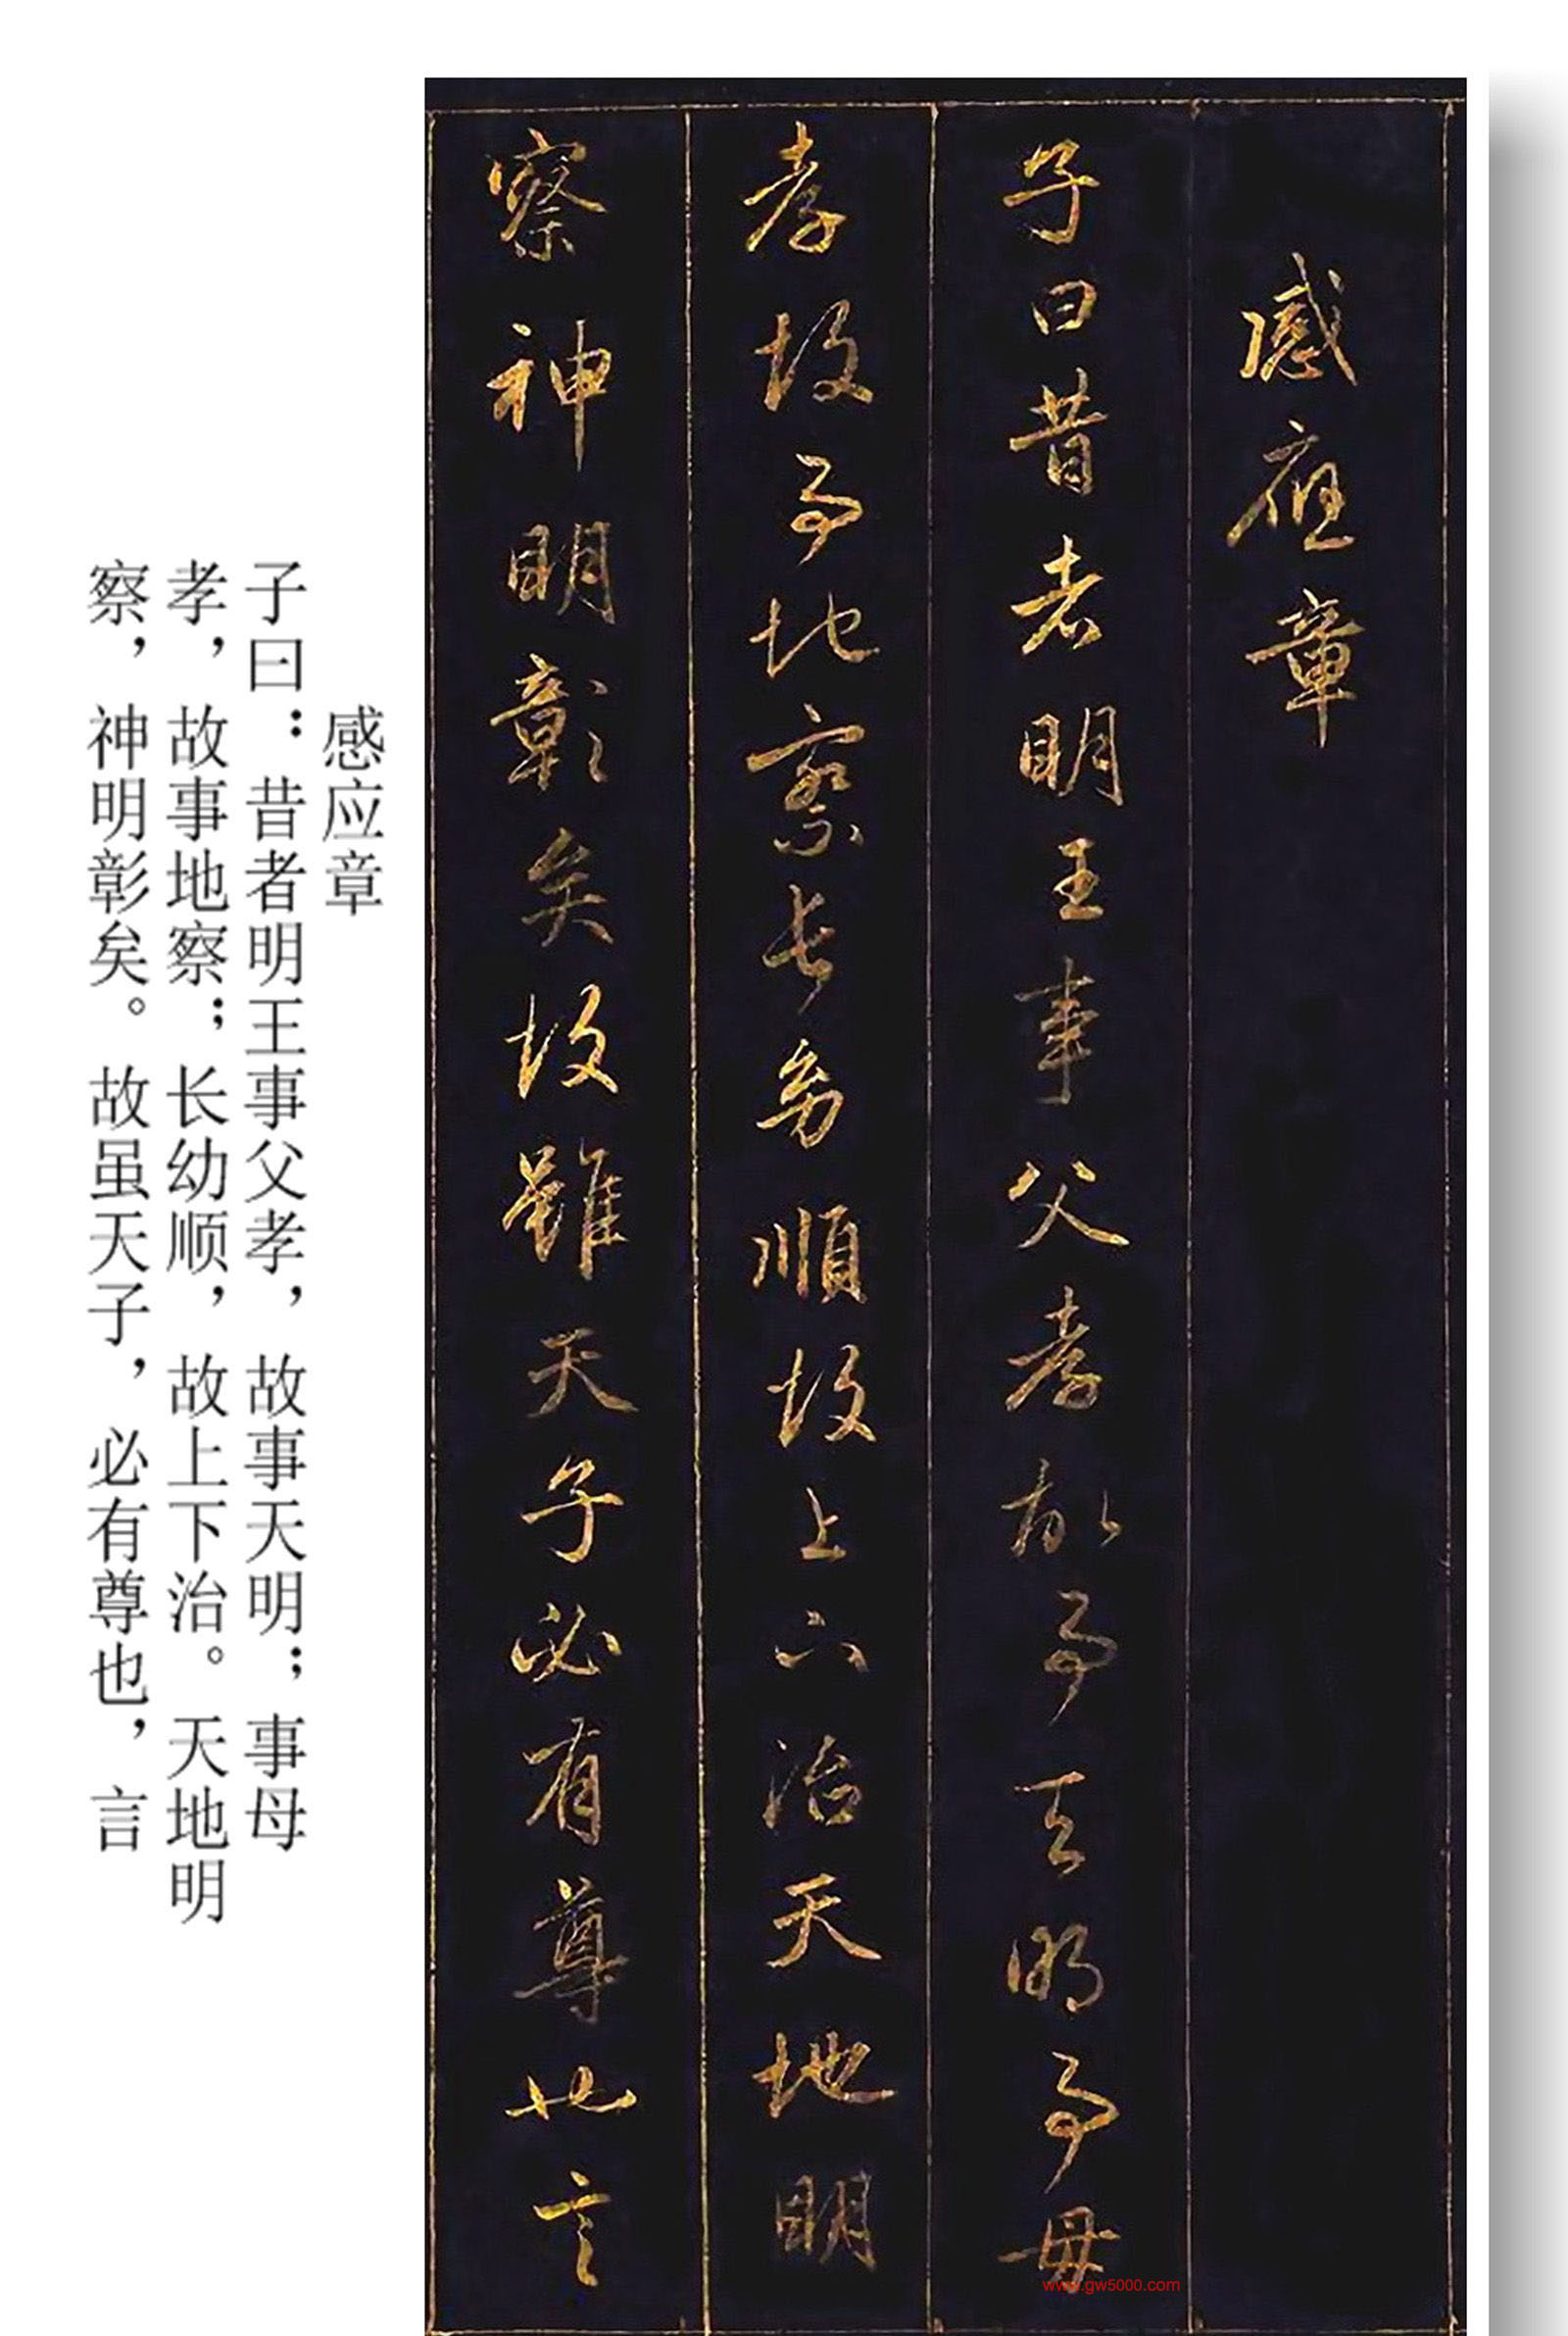 感應章
子曰昔者明王事父孝故事天明事母
孝故事地察長幼順故上下治天地明
察神明彰矣故雖天子必有尊也言
感应章
子曰：昔者明王事父孝，故事天明；事母
孝，故事地察；长幼顺，故上下治。天地明
察，神明彰矣。故虽天子，必有尊也，言
www.gw5000.com